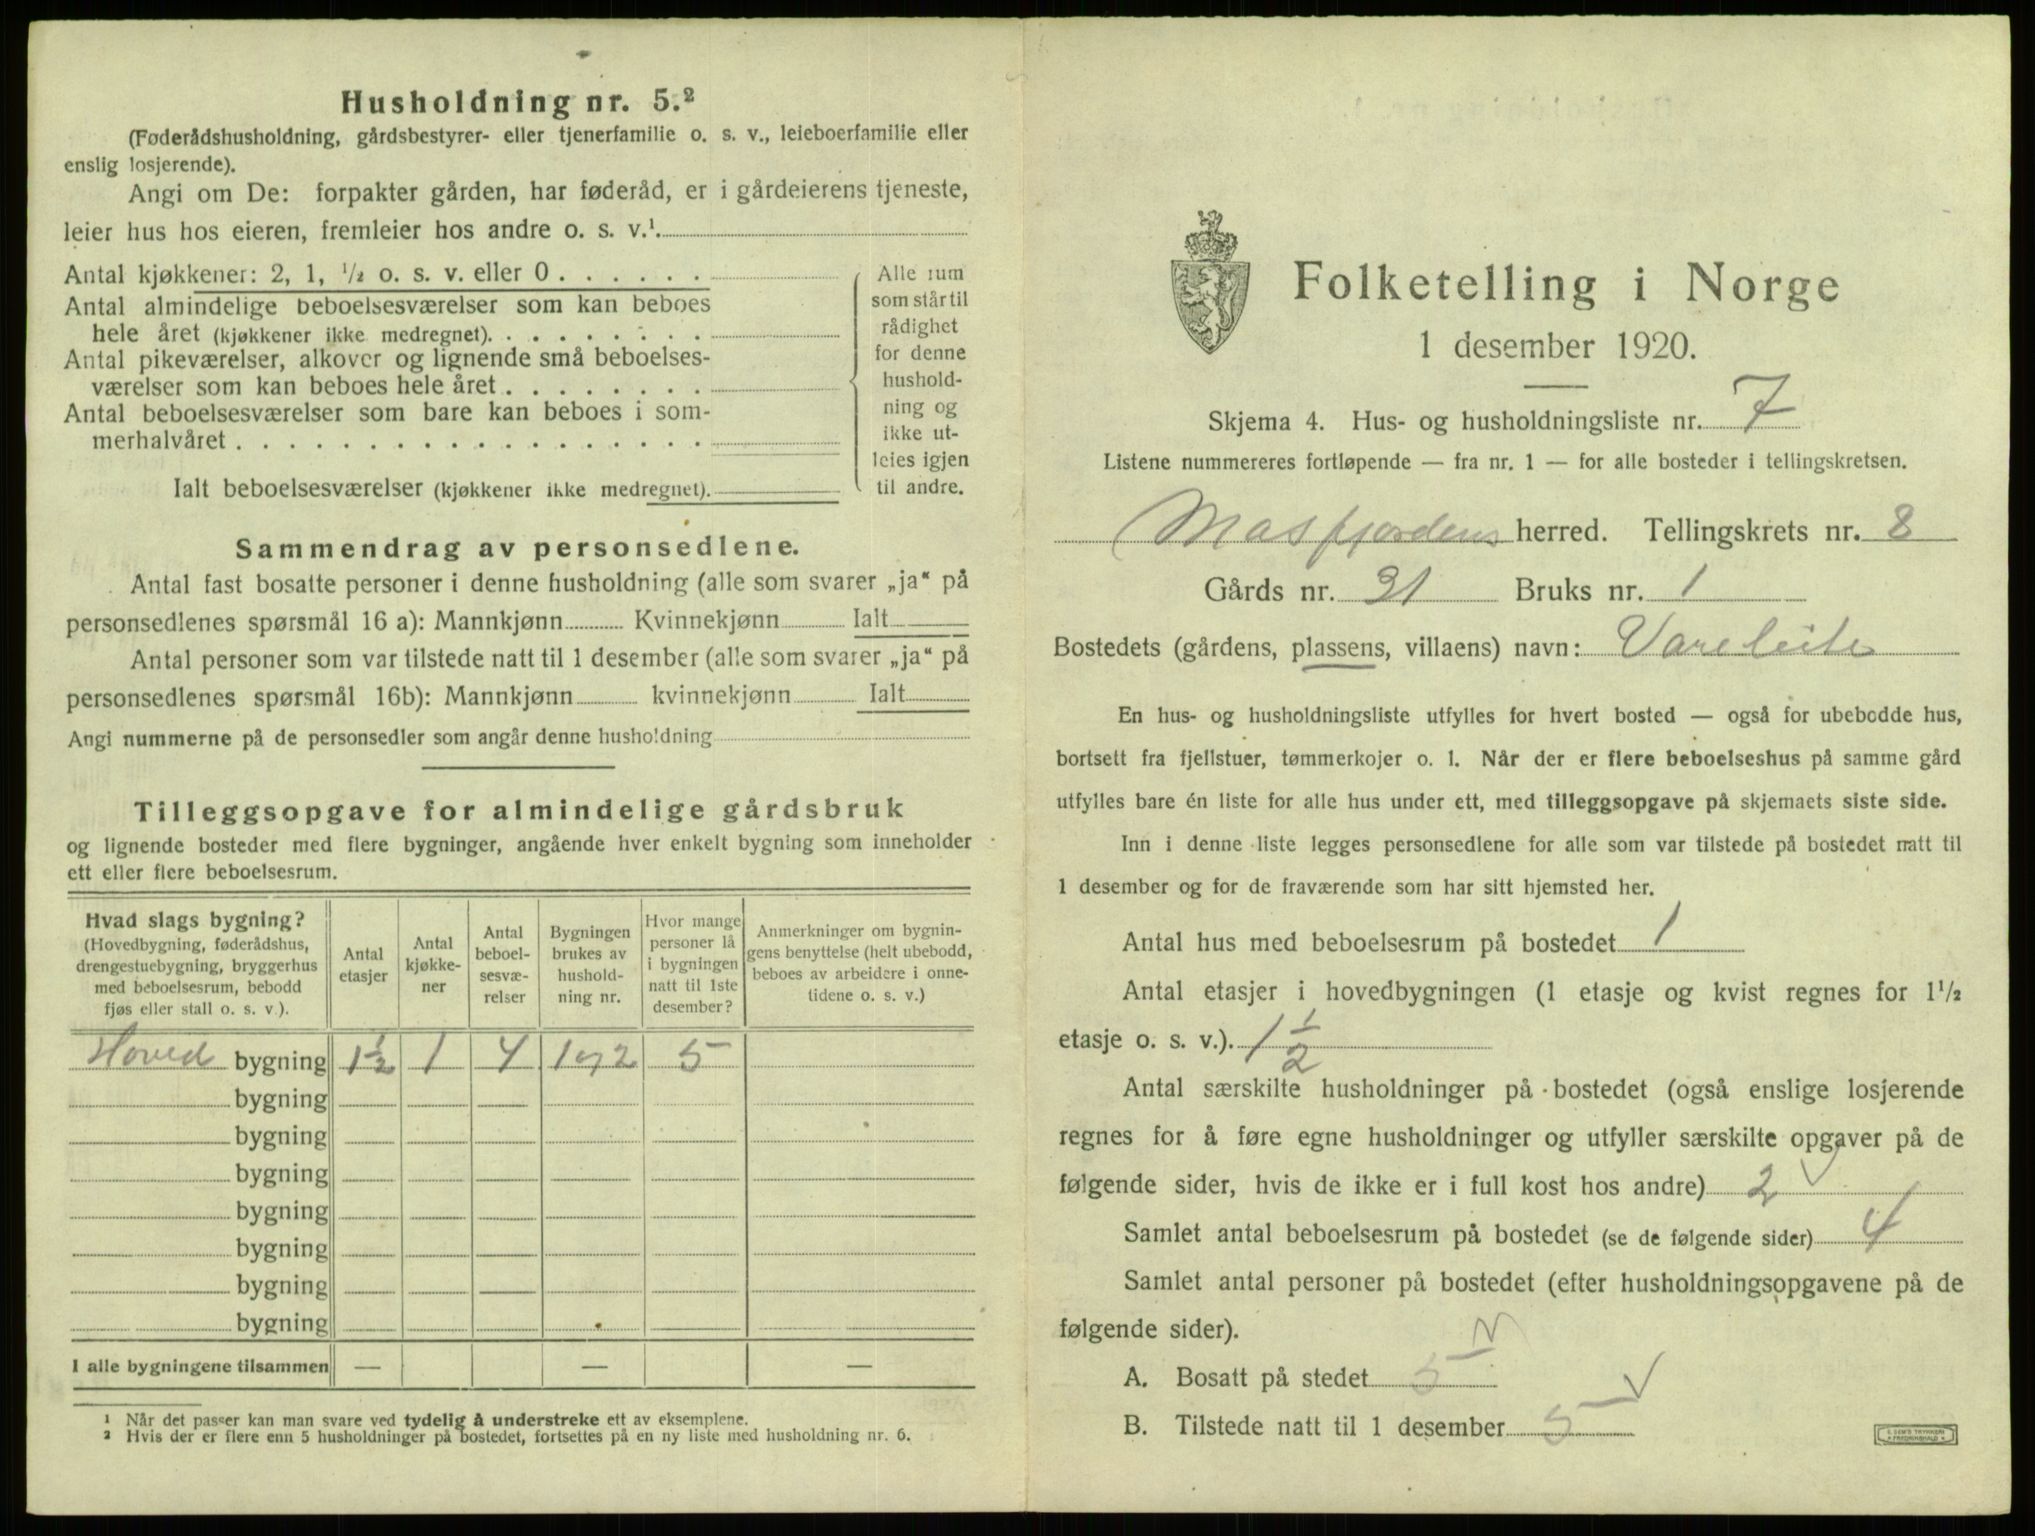 Husholdning nr. 5.²
(Føderådshusholdning, gårdsbestyrer- eller tjenerfamilie o. s. v., leieboerfamilie eller
enslig losjerende).
Angi om De: forpakter gården, har føderåd, er i gårdeierens tjeneste,
leier hus hos eieren, fremleier hos andre o. s. v.¹
Antal kjøkkener: 2, 1, ½ o. s. v. eller 0 . . . . . .
Antal almindelige beboelsesværelser som kan beboes
hele året (kjøkkener ikke medregnet). . . . . . . . .
Antal pikeværelser, alkover og lignende små beboelses-
værelser som kan beboes hele året . . . . . . . .
Antal beboelsesværelser som bare kan beboes i som-
merhalvåret . . . . . . . . . . . . . . . . . .
Ialt beboelsesværelser (kjøkkener ikke medregnet).
Alle rum
som står til
rådighet
for denne
hushold-
ning og
ikke ut-
leies igjen
til andre.
Sammendrag av personsedlene.
Antal fast bosatte personer i denne husholdning (alle som svarer „ja“ på
personsedlenes spørsmål 16 a): Mannkjønn Kvinnekjønn Ialt
Antal personer som var tilstede natt til 1 desember (alle som svarer „ja“ på
personsedlenes spørsmål 16b): Mannkjønn kvinnekjønn Ialt
Angi nummerne på de personsedler som angår denne husholdning
Tilleggsopgave for almindelige gårdsbruk
og lignende bosteder med flere bygninger, angående hver enkelt bygning som inneholder
ett eller flere beboelsesrum.
Hvad slags bygning?
(Hovedbygning, føderådshus,
drengestuebygning, bryggerhus
med beboelsesrum, bebodd
fjøs eller stall o. s. v.).
Antal
etasjer
Antal
kjøkke-
ner
Antal
beboel-
sesvæ-
relser
Bygningen
brukes av
hushold-
ning nr.
Hvor mange
personer lå
i bygningen
natt til 1ste
desember?
Anmerkninger om bygnin-
gens benyttelse (helt ubebodd,
beboes av arbeidere i onne-
tidene o. s. v.)
Hoved bygning 1½ 1 4 1 og 2 5
bygning
bygning
bygning
bygning
bygning
bygning
bygning
I alle bygningene tilsammen — — —
¹ Når det passer kan man svare ved tydelig å understreke ett av eksemplene.
² Hvis der er flere enn 5 husholdninger på bostedet, fortsettes på en ny liste med husholdning nr. 6.
Folketelling i Norge
1 desember 1920.
Skjema 4. Hus- og husholdningsliste nr. 7
Listene nummereres fortløpende — fra nr. 1 — for alle bosteder i tellingskretsen.
Masfjordens herred. Tellingskrets nr. 8
Gårds nr. 31 Bruks nr. 1
Bostedets (gårdens, plassens, villaens) navn: Vareleite
En hus- og husholdningsliste utfylles for hvert bosted — også for ubebodde hus,
bortsett fra fjellstuer, tømmerkojer o. l. Når der er flere beboelseshus på samme gård
utfylles bare én liste for alle hus under ett, med tilleggsopgave på skjemaets siste side.
Inn i denne liste legges personsedlene for alle som var tilstede på bostedet natt til
1 desember og for de fraværende som har sitt hjemsted her.
Antal hus med beboelsesrum på bostedet 1
Antal etasjer i hovedbygningen (1 etasje og kvist regnes for 1½
etasje o. s. v.). 1½
Antal særskilte husholdninger på bostedet (også enslige losjerende
regnes for å føre egne husholdninger og utfyller særskilte opgaver på de
følgende sider, hvis de ikke er i full kost hos andre) 2
Samlet antal beboelsesrum på bostedet (se de følgende sider) 4
Samlet antal personer på bostedet (efter husholdningsopgavene på de
følgende sider).
A. Bosatt på stedet 5
B. Tilstede natt til 1 desember 5